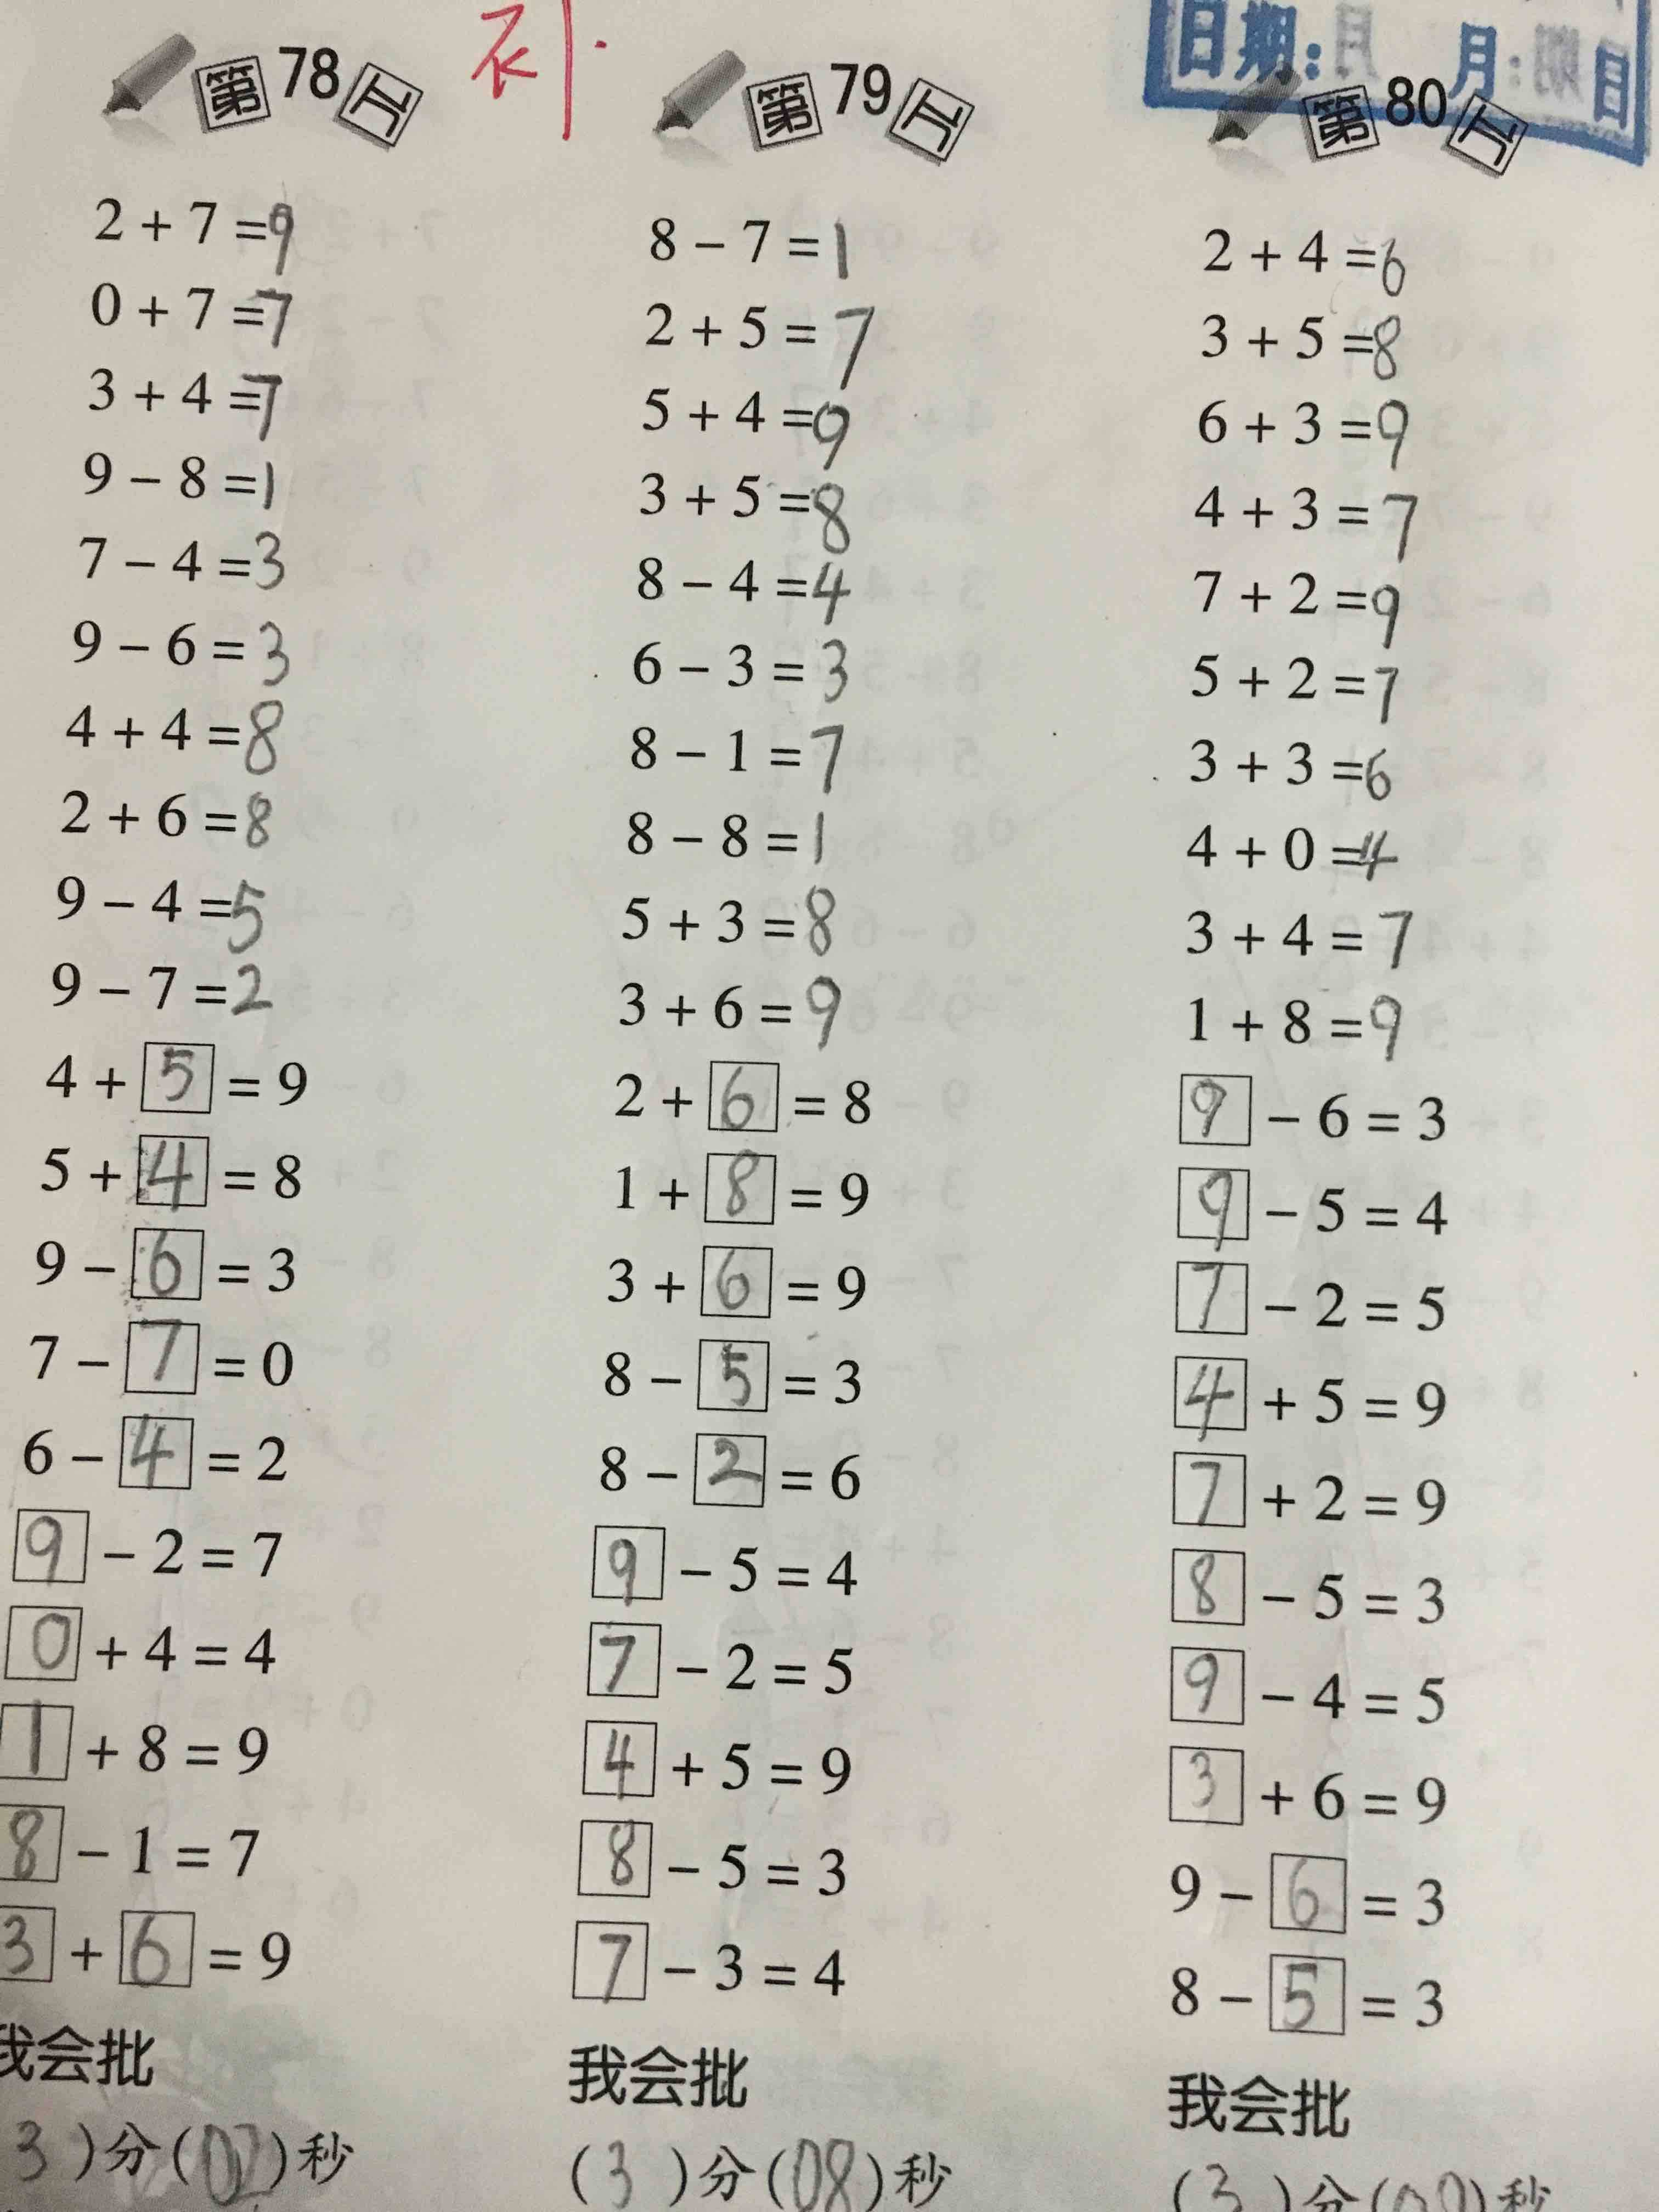 第78工
2+7=9
0+7=7
3+4=7
9-8=1
7-4=3
9-6=3
4+4=8
2+6=8
9-4=5
9-7=2
4+5=9
5+4=8
9-6=3
7-7=0
6-4=2
9-2=7
0+4=4
1+8=9
8-1=7
3+6=9
我会批
3)分(02)秒
第79工
8-7=1
2+5=7
5+4=9
3+5=8
8-4=4
6-3=3
8-1=7
8-8=1
5+3=8
3+6=9
2+6=8
1+8=9
3+6=9
8-5=3
8-2=6
9-5=4
7-2=5
4+5=9
8-5=3
7-3=4
我会批
(3)分(08)秒
日期: 月 日
第80工
2+4=6
3+5=8
6+3=9
4+3=7
7+2=9
5+2=7
3+3=6
4+0=4
3+4=7
1+8=9
9-6=3
9-5=4
7-2=5
4+5=9
7+2=9
8-5=3
9-4=5
3+6=9
9-6=3
8-5=3
我会批
(3)分( )秒